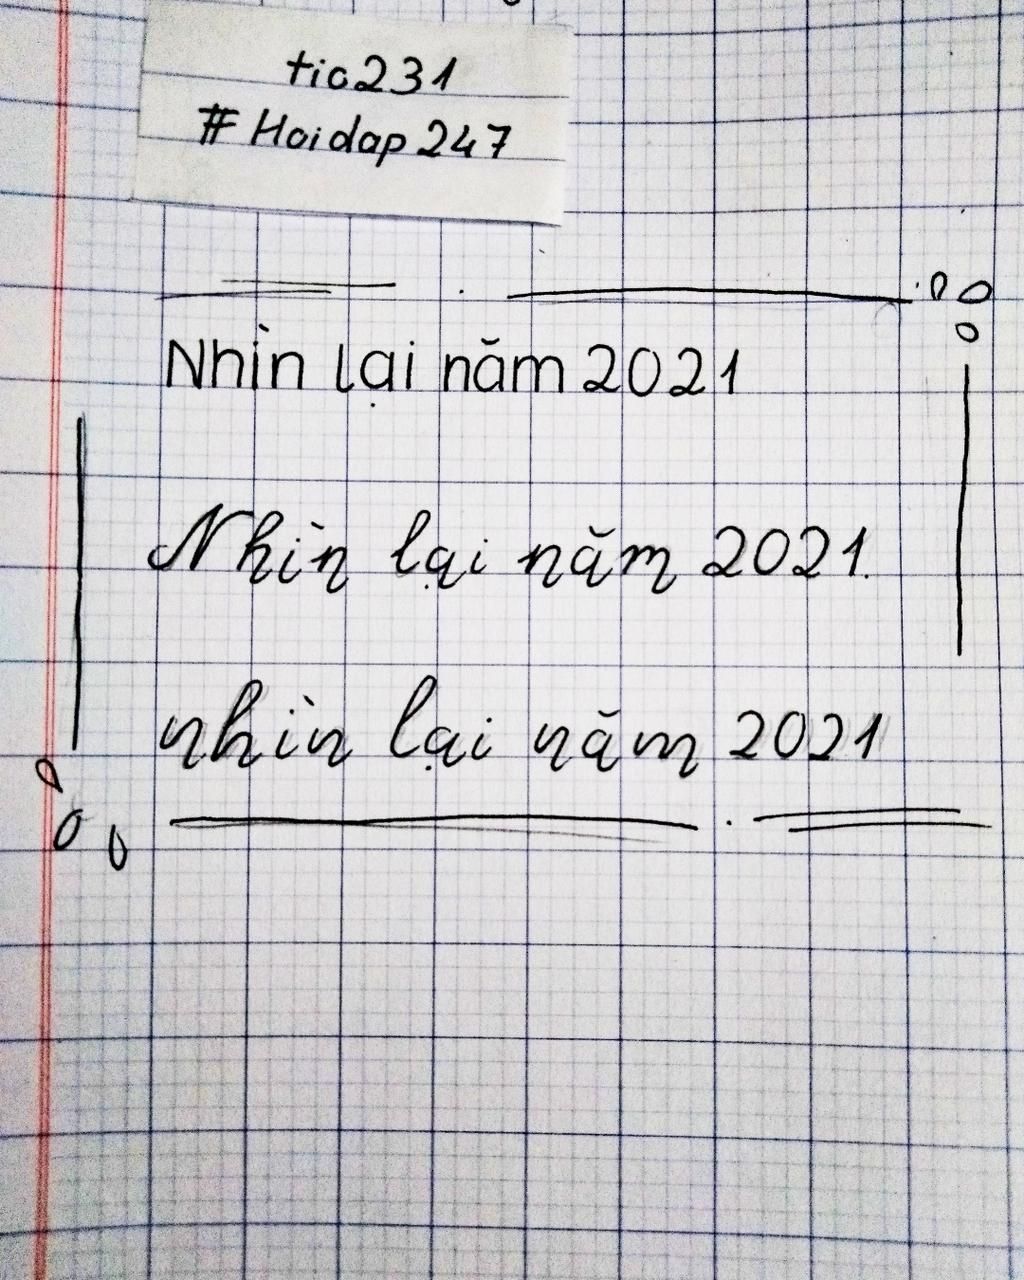 tic231
# Hoidap 247
Nhìn lại năm 2021
Nhìn lại năm 2021.
nhìn lại năm 2021